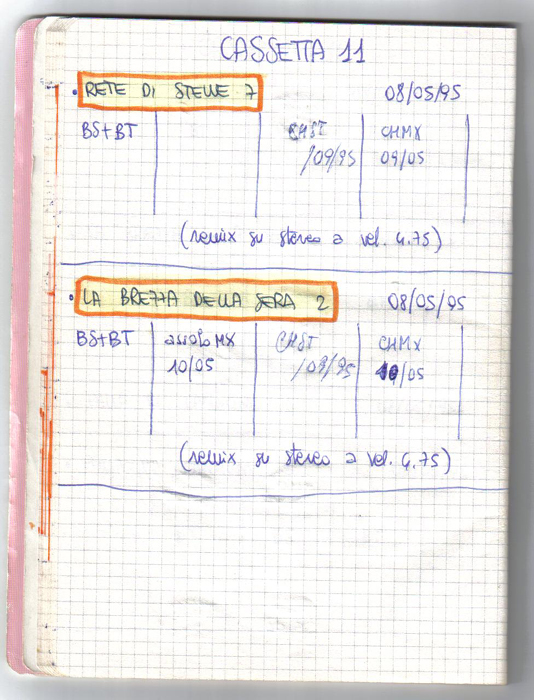 CASSETTA 11
• RETE DI STELLE 7 08/05/95
BS+BT CHST CHMX
/09/95 09/05
(remix su stereo a vel. 4.75)
• LA BREZZA DELLA SERA 2 08/05/95
BS+BT assolo MX CHST CHMX
10/05 /09/95 10/05
(remix su stereo a vel. 4.75)